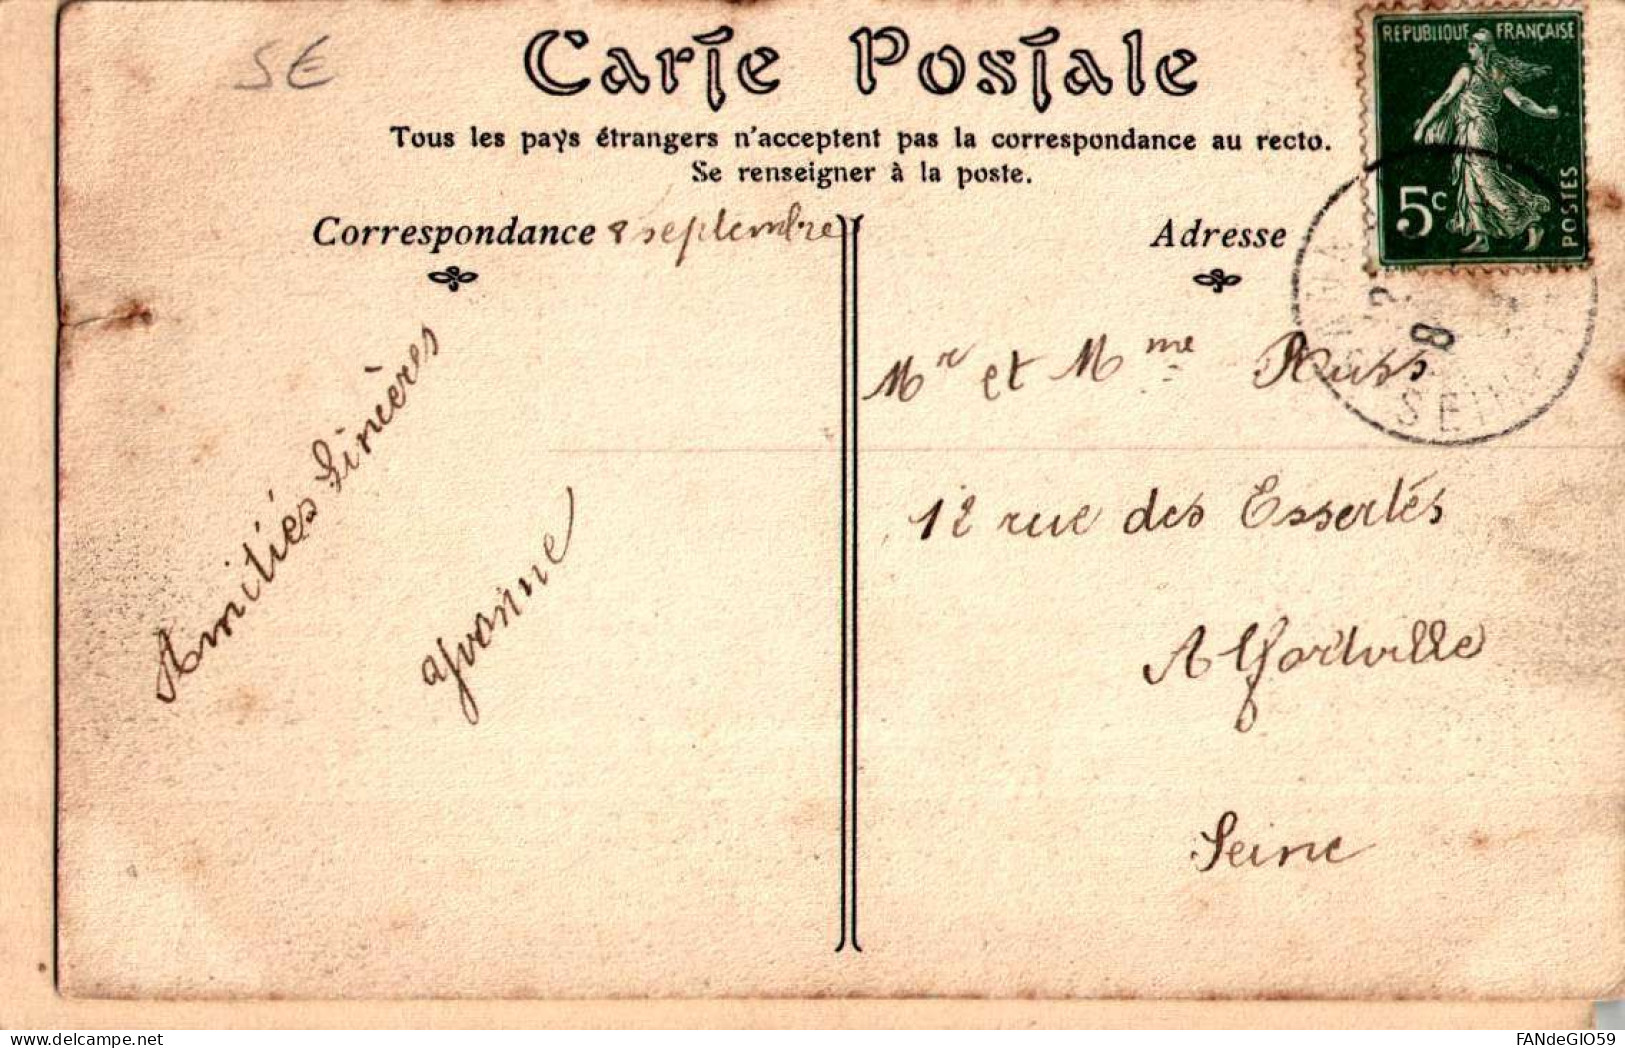 SE
Carte Postale
REPUBLIQUE FRANÇAISE
5c
POSTES
Tous les pays étrangers n'acceptent pas la correspondance au recto.
Se renseigner à la poste.
Correspondance 8 septembre
Adresse
8
SEINE
Mr et Mme Russ
12 rue des Essertés
Alfortville
Seine
Amitiés Sincères
Yvonne
FANdeGIO59